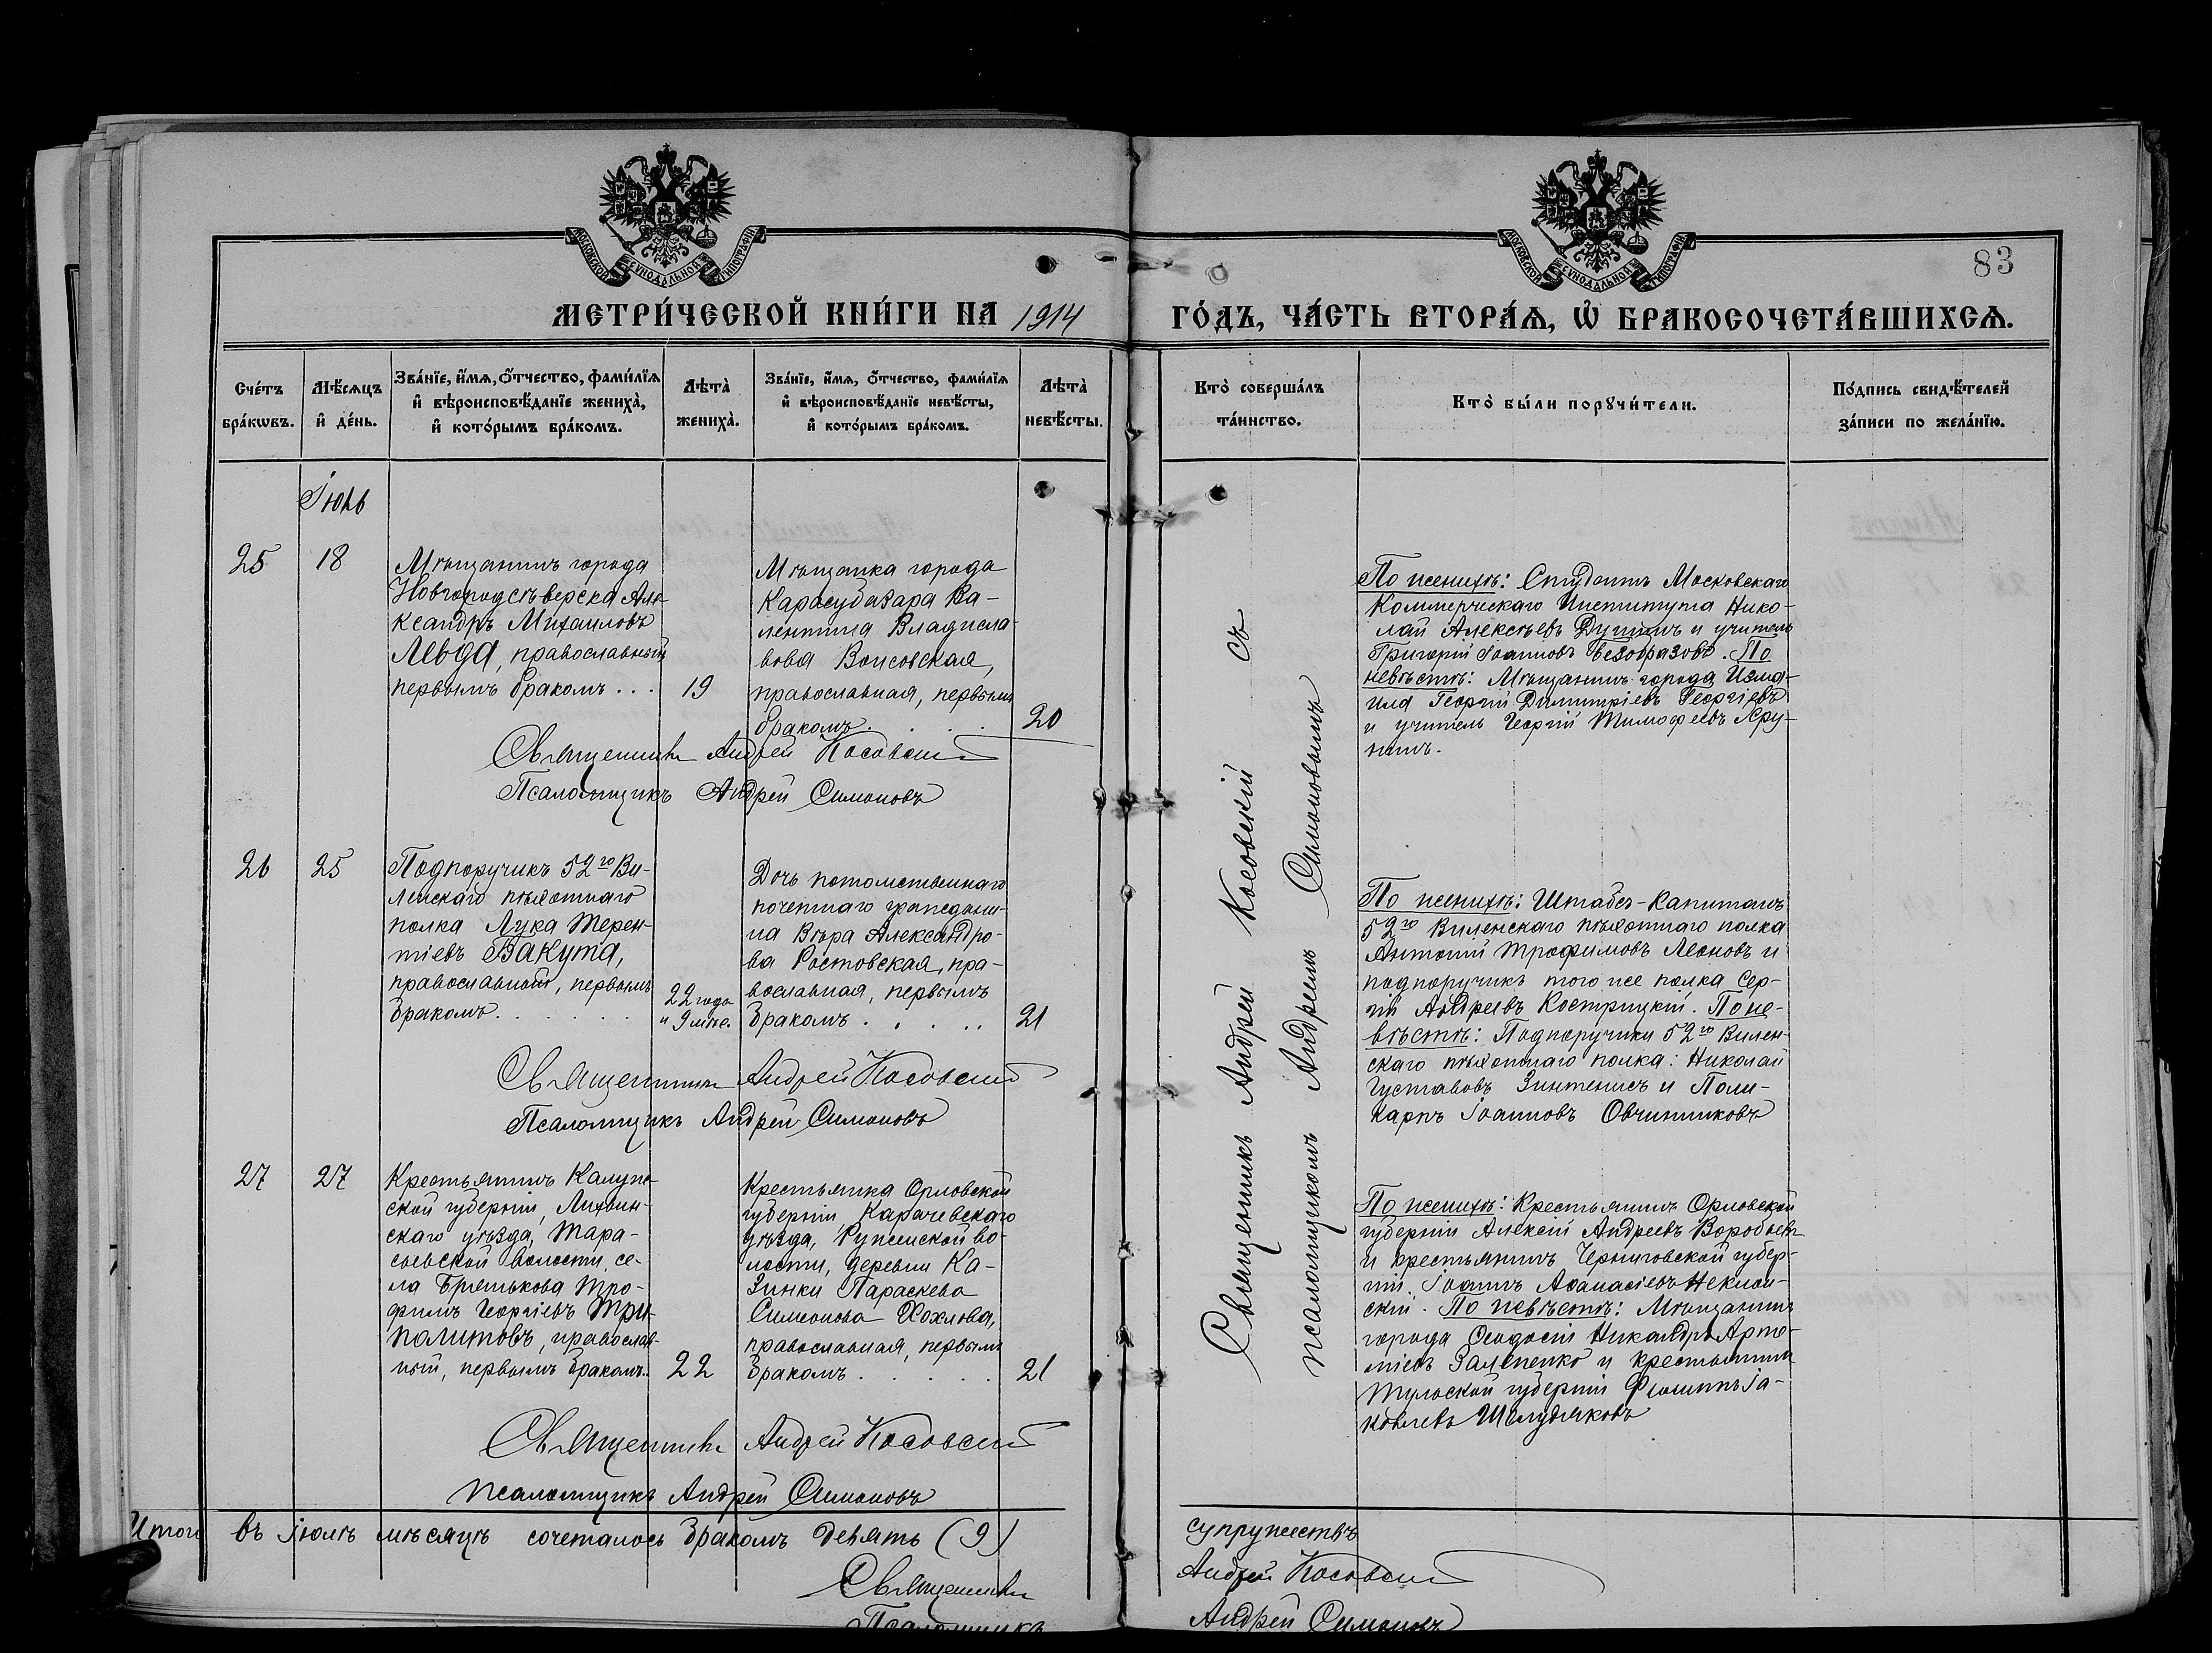 МОСКОВСКОЙ СѴНОДАЛЬНОЙ ТИПОГРАФІИ
МОСКОВСКОЙ СѴНОДАЛЬНОЙ ТИПОГРАФІИ
83
МЕТРИ́ЧЕСКОЙ КНИ́ГИ НА 1914 ГО́ДЪ, ЧА́СТЬ ВТОРА́Ѧ, Ѡ҆ БРАКОСОЧЕТА́ВШИХСѦ.
Сче́тъ бра́кѡвъ.
Мѣ́сѧцъ и҆ де́нь.
Зва́нїе, и҆́мѧ, ѻ҆́тчество, фами́лїѧ и҆ вѣроисповѣ́данїе жениха̀, и҆ кото́рымъ бра́комъ.
Лѣта̀ жениха̀.
Зва́нїе, и҆́мѧ, ѻ҆́тчество, фами́лїѧ и҆ вѣроисповѣ́данїе невѣ́сты, и҆ кото́рымъ бра́комъ.
Лѣта̀ невѣ́сты.
Кто̀ соверша́лъ та́инство.
Кто̀ бы́ли порꙋчи́тели.
По́дпись свидѣ́телей за́писи по жела́нїю.
Іюль
25
18
Мѣщанинъ города
Новгородсѣверска Але-
ксандръ Михаиловъ
Левда, православный
первымъ бракомъ...
19
Мѣщанка города
Карасубазара Ва-
лентина Владисла-
вова
православная, первымъ
бракомъ.
20
По женихѣ: Студентъ Московскаго
Коммерческаго Института Нико-
лай Алексѣевъ и учитель
Григорій Іоанновъ Безобразовъ. По
невѣстѣ: Мѣщанинъ города Изма-
ила Георгій Димитріевъ Георгіевъ
и учитель Георгій Тимофеевъ
Священникъ Андрей Косовскій
Псаломщикъ Андрей Симоновъ
26
25
Подпоручикъ 52го Ви-
ленскаго пѣхотнаго
полка Лука Терен-
тіевъ Вакута,
православный, первымъ
бракомъ.
22 года
и 9 мѣс.
Дочь потомственнаго
почетнаго граждани-
на Вѣра Александро-
ва Ростовская, пра-
вославная, первымъ
бракомъ.
21
По женихѣ: Штабсъ-Капитанъ
52го Виленскаго пѣхотнаго полка
Антоній Трофимовъ Леоновъ и
подпоручикъ того же полка Сер-
гій Андреевъ Кострицкій. По не-
вѣстѣ: Подпоручики 52го Вилен-
скаго пѣхотнаго полка: Николай
Густавовъ Зинтенисъ и Поли-
карпъ Іоанновъ Овчинниковъ
Священникъ Андрей Косовскій
Псаломщикъ Андрей Симоновъ
27
27
Крестьянинъ Калуж-
ской губерніи, Лихвин-
скаго уѣзда, Тара-
сьевской волости, се-
ла Тро-
фимъ Георгіевъ Три-
политовъ, православ-
ный, первымъ бракомъ.
22
Крестьянка Орловской
губерніи, Карачевскаго
уѣзда, Руженской во-
лости, деревни Ка-
зинки Параскева
Симеонова Хохлова,
православная, первымъ
бракомъ.
21
По женихѣ: Крестьянинъ Орловской
губерніи Алексій Андреевъ Воробьевъ
и крестьянинъ Черниговской губер-
ніи Іоаннъ Аѳанасіевъ
скій. По невѣстѣ: Мѣщанинъ
города Ѳеодосіи Никандръ Арте-
міевъ и крестьянинъ
Тульской губерніи Филиппъ Іа-
ковлевъ Шелудяковъ
Священникъ Андрей Косовскій
Псаломщикъ Андрей Симоновъ
Священникъ Андрей Косовскій съ
псаломщикомъ Андреемъ Симоновымъ
Итого въ Іюлѣ мѣсяцѣ сочеталось бракомъ девять (9) супружествъ
Священникъ Андрей Косовскій
Псаломщикъ Андрей Симоновъ